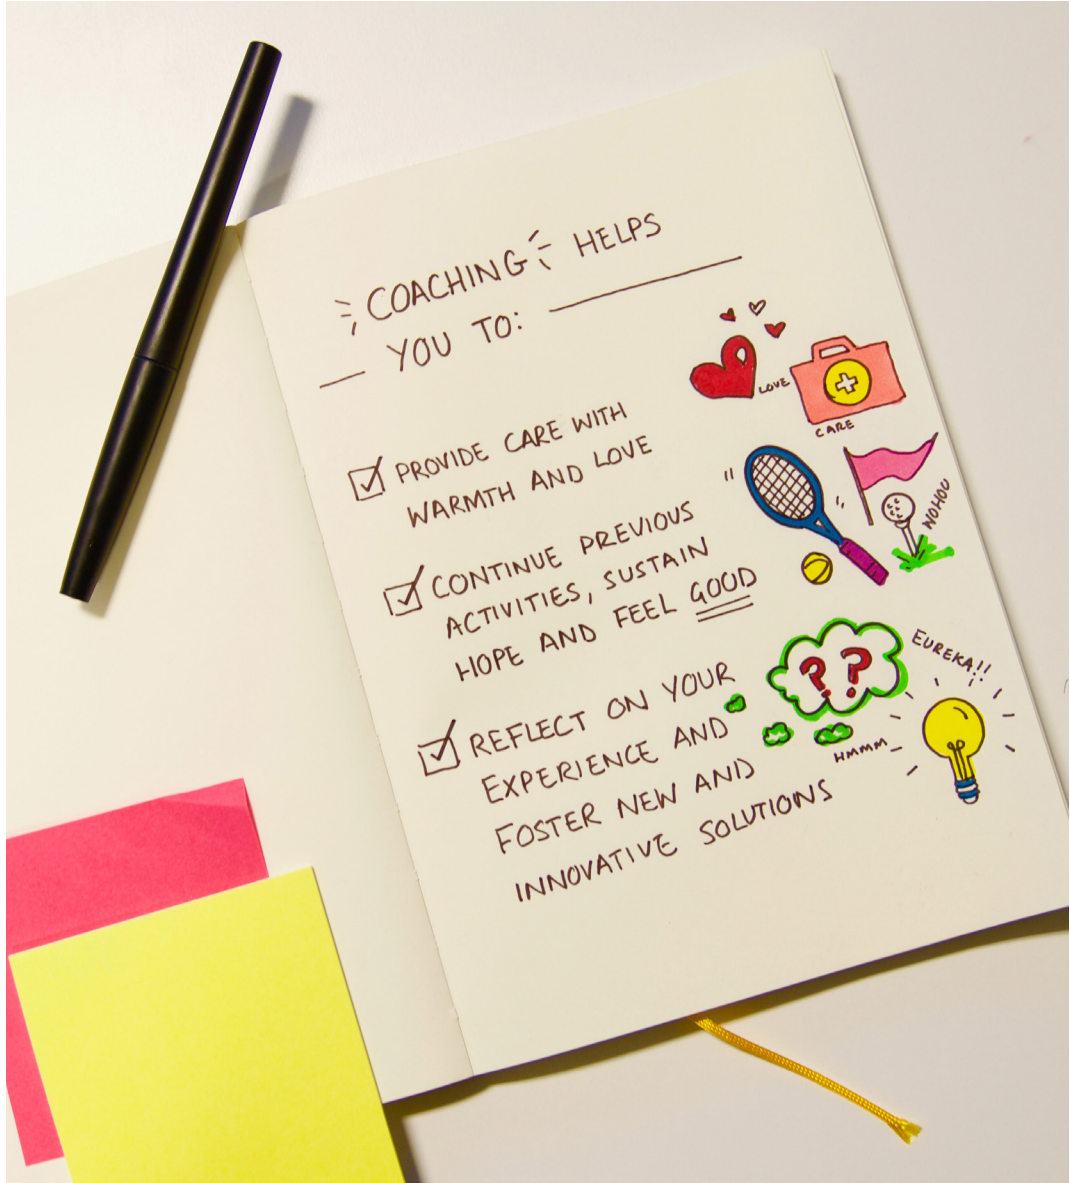 COACHING HELPS
YOU TO:
PROVIDE CARE WITH
WARMTH AND LOVE
CONTINUE PREVIOUS
ACTIVITIES, SUSTAIN
HOPE AND FEEL GOOD
REFLECT ON YOUR
EXPERIENCE AND
FOSTER NEW AND
INNOVATIVE SOLUTIONS
LOVE
CARE
WOHOU
EUREKA!!
??
HMMM